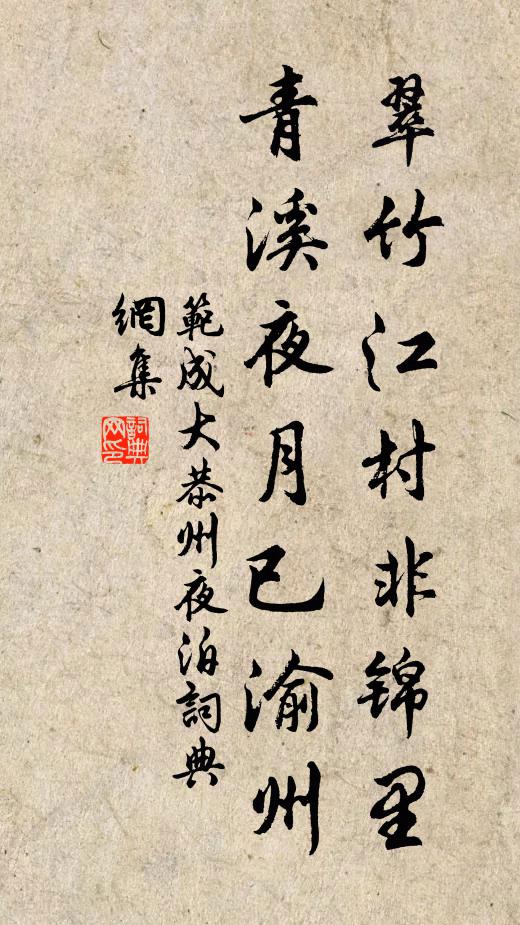 翠竹江村非锦里
青溪夜月已渝州
範成大恭州夜泊詞典
網集
詞典
网印